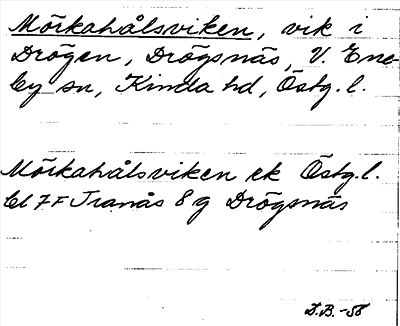 Mörkahålsviken, vik i
Drögen, Drögsnäs, V. Ene-
by sn, Kinda hd, Östg. l.
Mörkahålsviken ek Östg. l.
bl 7F Tranås 8 g Drögsnäs
D.B. -56